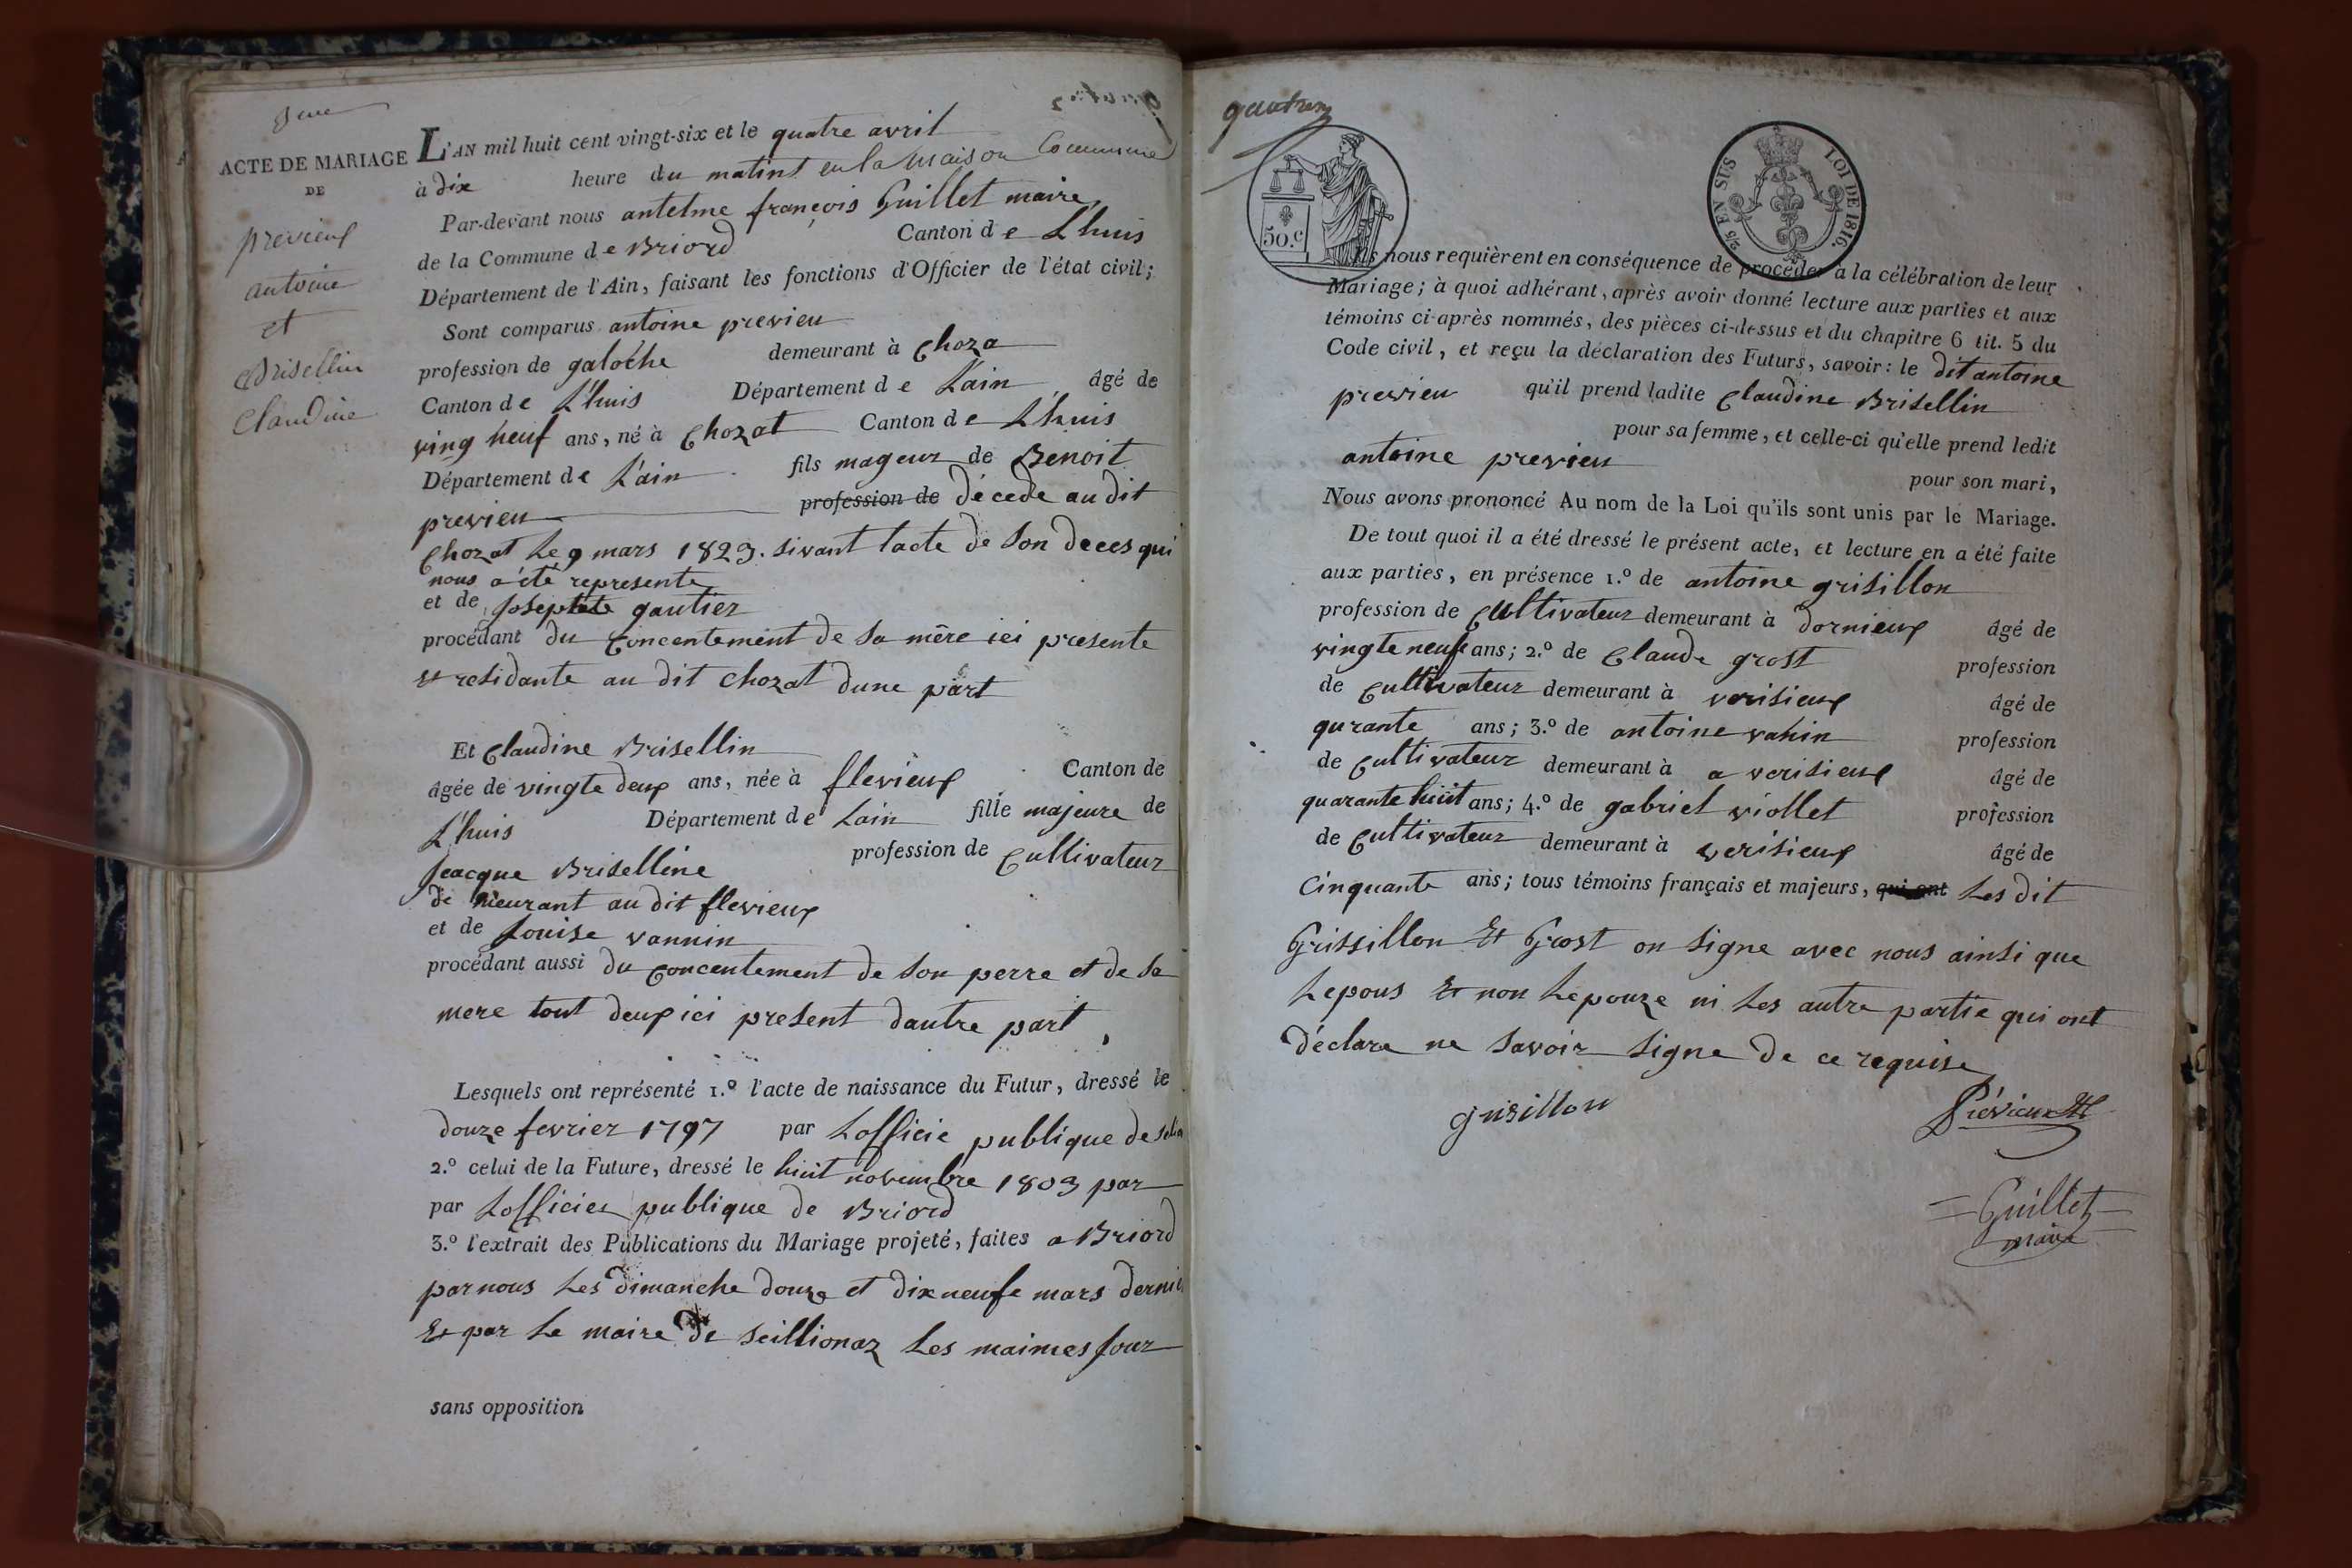 3eme
ACTE DE MARIAGE
DE
previeux
antoine
et
Brisellin
Claudine
L'AN mil huit cent vingt-six et le quatre avril
à dix heure du matins en la maison Commune
Par-devant nous antelme françois Guillet maire
de la Commune de Briord Canton de Lhuis
Département de l'Ain, faisant les fonctions d'Officier de l'état civil;
Sont comparus antoine previeu
profession de galoche demeurant à Choza
Canton de L'huis Département de L'ain âgé de
ving neuf ans, né à Chozat Canton de Lhuis
Département de L'ain fils mageur de Benoit
previeu profession de décede au dit
Chozat Le 9 mars 1823. sivant lacte de Son deces qui
nous a été represente
et de Josephte gautier
procédant du Concentement de Sa mère ici presente
Et residante au dit Chozat dune part
Et Claudine Brisellin
âgée de vingte deux ans, née à flevieux Canton de
L'huis Département de Lain fille majeure de
Jeacque Briselline profession de Cultivateur
de meurant au dit flevieux
et de Louise vannin
procédant aussi du Concentement de Son perre et de Sa
mere tout deux ici present dautre part,
Lesquels ont représenté 1.º l'acte de naissance du Futur, dressé le
douze fevrier 1797 par Lofficie publique de
2.º celui de la Future, dressé le huit novembre 1803 par
par Lofficier publique de Briord
3.º l'extrait des Publications du Mariage projeté, faites a Briord
par nous Les dimanche douze et dix neufe mars dernier
Et par Le maire de Seillionaz Les maimes Jour
sans opposition
50.c
2/5 EN SUS LOI DE 1816.
Ils nous requièrent en conséquence de procéder à la célébration de leur
Mariage; à quoi adhérant, après avoir donné lecture aux parties et aux
témoins ci-après nommés, des pièces ci-dessus et du chapitre 6 tit. 5 du
Code civil, et reçu la déclaration des Futurs, savoir: le dit antoine
previeu qu'il prend ladite Claudine Brisellin
pour sa femme, et celle-ci qu'elle prend ledit
antoine previeu
pour son mari,
Nous avons prononcé Au nom de la Loi qu'ils sont unis par le Mariage.
De tout quoi il a été dressé le présent acte, et lecture en a été faite
aux parties, en présence 1.º de antoine grisillon
profession de Cultivateur demeurant à dornieux âgé de
vingte neufe ans; 2.º de Claude grost profession
de Cultivateur demeurant à verisieux âgé de
qurante ans; 3.º de antoine vanin profession
de Cultivateur demeurant à a verisieux âgé de
quarante huit ans; 4.º de gabriel viollet profession
de Cultivateur demeurant à verisieux âgé de
Cinquante ans; tous témoins français et majeurs, qui ont Les dit
Grissillon Et Grost on Signe avec nous ainsi que
Lepous Et non Lepouze ni Les autre partie qui ont
déclare ne Savoir Signe de ce requise
grisillon
Prévieux
Guillet
maire